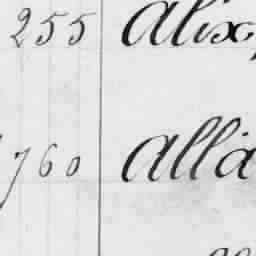 255 Alix,
760 Allà